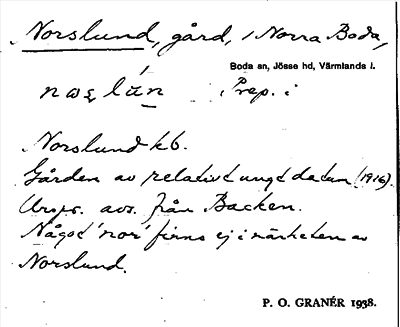 Norslund, gård, i Norra Boda,
Boda sn, Jösse hd, Värmlands l.
Prep. i
Norslund kb.
Gården av relativt ungt datum (1916).
Urspr. avs. från Backen.
Något 'nor' finns ej i närheten av
Norslund.
P. O. GRANÉR 1938.